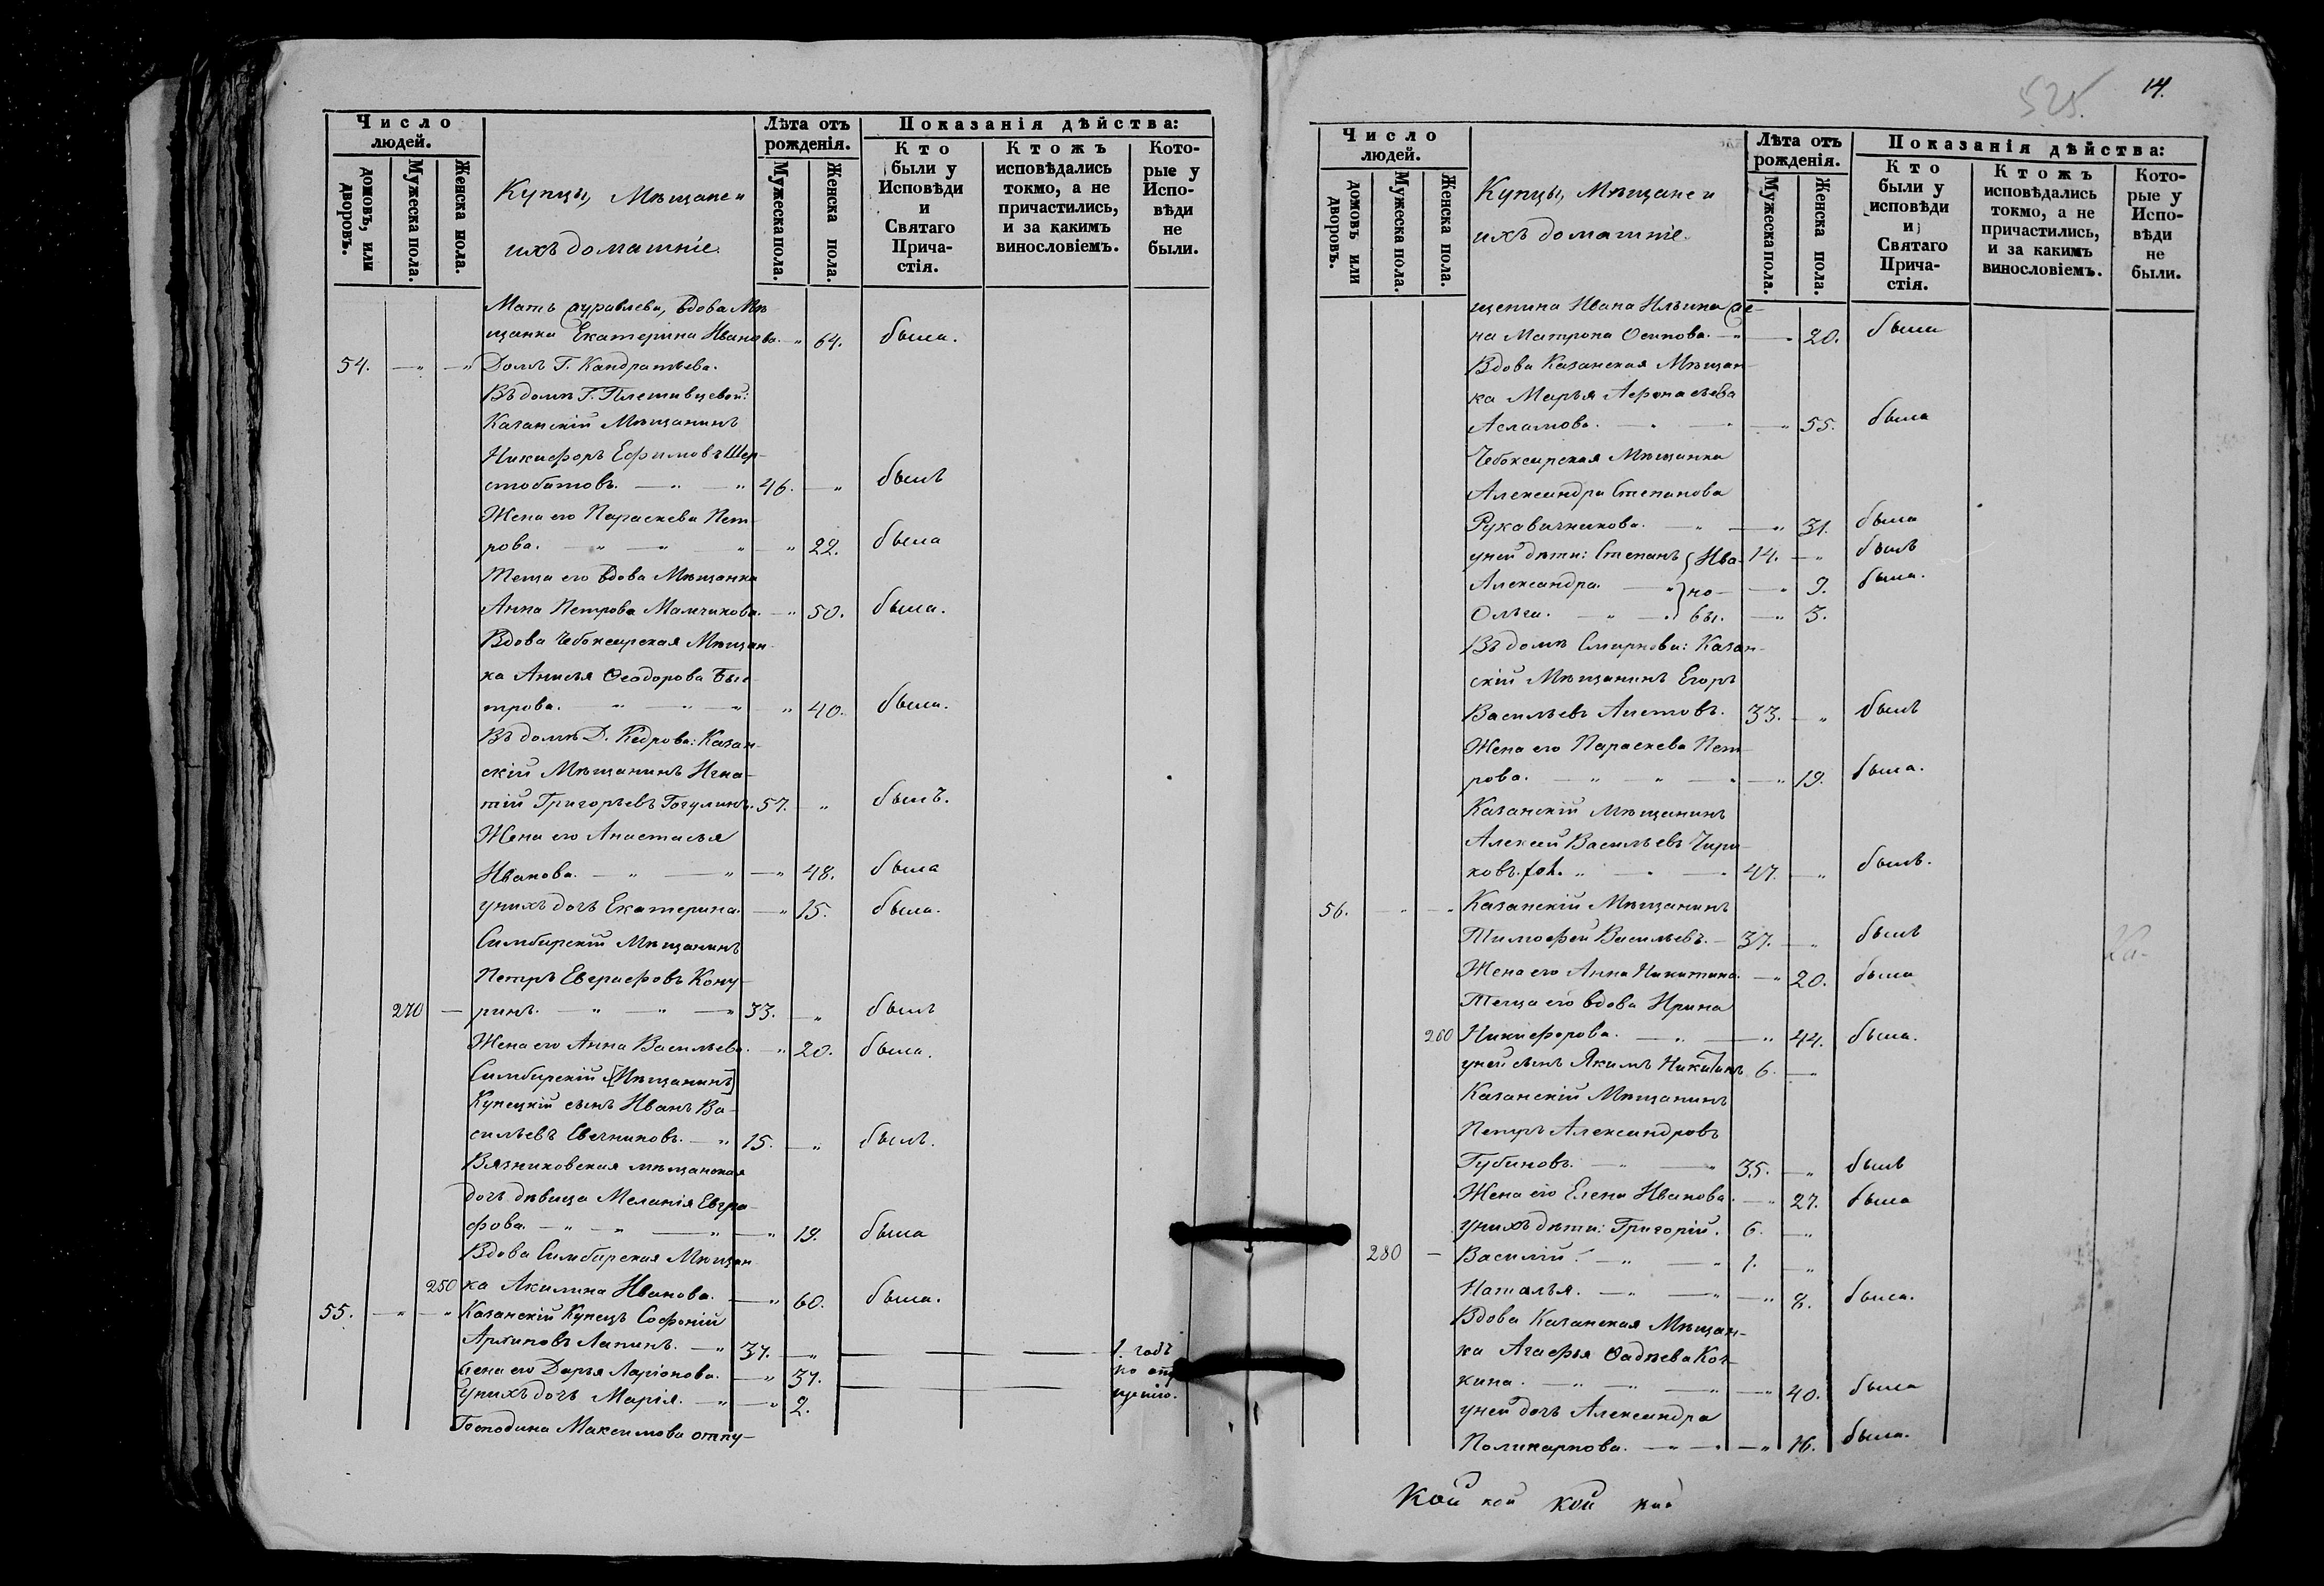 Число людей.
домовъ, или дворовъ.
Мужеска пола.
Женска пола.
Купцы, Мѣщане и
ихъ домашніе.
Лѣта отъ рожденія.
Мужеска пола.
Женска пола.
Показанія дѣйства:
Кто были у Исповѣди и Святаго Причастія.
Ктожъ исповѣдались токмо, а не причастились, и за какимъ винословіемъ.
Которые у Исповѣди не были.
Мать Журавлева, вдова Мѣ-
щанка Екатерина Иванова. — " 64. была.
54. — " — " Домъ Г. Кандратьева.
Въ домѣ Г. Плешивцевой:
Казанскій Мѣщанинъ
Никифоръ Ефимовъ Шер-
стобитовъ. — " — " 46. — " былъ
Жена его Параскева Пет-
рова. — " — " — " 22. была
Теща его вдова Мѣщанка
Анна Петрова Мамчикова. — " 50. была.
Вдова Чебоксарская Мѣщан-
ка Анисья Ѳеодорова Быс-
трова. — " — " — " 40. была.
Въ домѣ Д. Кедрова: Казан-
скій Мѣщанинъ Игна-
тій Григорьевъ Гогулинъ. 57. — " былъ.
Жена его Анастасья
Иванова. — " — " — " 48. была
у нихъ дочь Екатерина. — " 15. была.
Симбирскій Мѣщанинъ
Петръ Евграфовъ Кону-
270 — ринъ. — " — " 33. — " былъ
Жена его Анна Васильева. — " 20. была.
Симбирскій [Мѣщанинъ]
Купецкій сынъ Иванъ Ва-
сильевъ Свечниковъ. — " 15. — " былъ.
Вязниковская мѣщанская
дочь дѣвица Меланія Евгра-
фова. — " — " — " 19. была
Вдова Симбирская Мѣщан-
250 ка Акилина Иванова. — " 60. была.
55. — " — " Казанскій Купецъ Софоній
Архиповъ Лапинъ. — " 37. — " — — 1. годъ
Жена его Дарья Ларіонова. — " 37. — — по опу-
у нихъ дочь Марія. — " — " 2. щенію.
Господина Максимова отпу-
525.
14.
Число людей.
домовъ или дворовъ.
Мужеска пола.
Женска пола.
Купцы, Мѣщане и
ихъ домашніе.
Лѣта отъ рожденія.
Мужеска пола.
Женска пола.
Показанія дѣйства:
Кто были у исповѣди и Святаго Причастія.
Ктожъ исповѣдались токмо, а не причастились, и за какимъ винословіемъ.
Которые у Исповѣди не были.
щенина Ивана Ильина Же-
на Матрона Осипова. — " — " 20. была
Вдова Казанская Мѣщан-
ка Марья Афонасьева
Асламова. — " — " 55. была
Чебоксарская Мѣщанка
Александра Степанова
Рукавишникова. — " — " 31. была
у ней дѣти: Степанъ } Ива- 14. — " былъ
Александра. — " } но- — " 9. была.
Ольга. — " — " } вы. — " 3.
Въ домѣ Смирнова: Казан-
скій Мѣщанинъ Егоръ
Васильевъ Аистовъ. 33. — " былъ
Жена его Параскева Пет-
рова. — " — " — " 19. была.
Казанскій Мѣщанинъ
Алексей Васильевъ Чири-
ковъ. " — " 47. — " былъ.
56. — " — " Казанскій Мѣщанинъ
Тимофей Васильевъ. — 37. — " былъ
Жена его Анна Никитина. — " 20. была
Теща его вдова Ирина
260 Никифорова. — " — " 44. была.
у ней сынъ Якимъ Никитинъ 6. —
Казанскій Мѣщанинъ
Петръ Александровъ
Губиновъ. — " — " 35. — " былъ
Жена его Елена Иванова. — " 27. была
у нихъ дѣти: Григорій. 6. — "
280 — Василій. — " — " 1. — "
Наталья. — " — " — " 8. была.
Вдова Казанская Мѣщан-
ка Агафья Ѳадѣева Коч-
кина. — " — " — " 40. была
у ней дочь Александра
Поликарпова. — " — " — " 16. была.
Кой кой кой